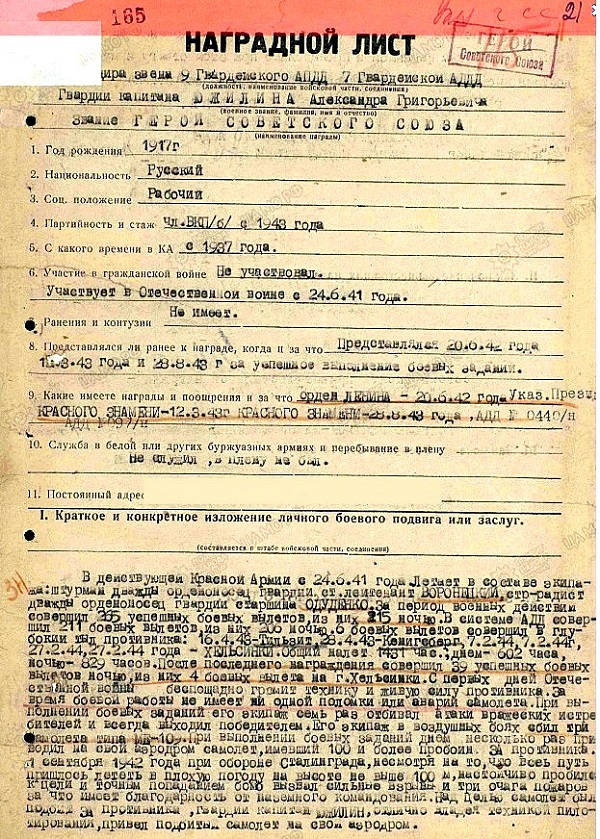 165
21
НАГРАДНОЙ ЛИСТ
ГЕРОЙ
Советского Союза
дира звена 9 Гвардейского АПДД 7 Гвардейской АДДД
(должность, наименование войсковой части, соединения)
Гвардии капитана ЮЖИЛИНА Александра Григорьевича
(военное звание, фамилия, имя и отчество)
Звание ГЕРОЙ СОВЕТСКОГО СОЮЗА
(наименование награды)
1. Год рождения 1917г
2. Национальность Русский
3. Соц. положение Рабочий
4. Партийность и стаж Чл.ВКП/б/ с 1943 года
5. С какого времени в КА с 1937 года.
6. Участие в гражданской войне Не участвовал.
Участвует в Отечественной войне с 24.6.41 года.
7. Ранения и контузии Не имеет.
8. Представлялся ли ранее к награде, когда и за что Представлялся 20.6.42 года
12.3.43 года и 28.8.43 г за успешное выполнение боевых заданий.
9. Какие имеете награды и поощрения и за что орден ЛЕНИНА - 20.6.42 года Указ.Презид
КРАСНОГО ЗНАМЕНИ-12.3.43г КРАСНОГО ЗНАМЕНИ-28.8.43 года ,АДД № 0440/н
АДД №
10. Служба в белой или других буржуазных армиях и пребывание в плену
Не служил ,в плену не был.
11. Постоянный адрес
I. Краткое и конкретное изложение личного боевого подвига или заслуг.
(составляется в штабе войсковой части, соединения)
В действующей Красной Армии с 24.6.41 года.Летает в составе экипа-
жа:штурман дважды орденоносец гвардии ст.лейтенант ВОРОНЦКИЙ,стр-радист
дважды орденоносец гвардии старшина ОДУДЕНКО.За период военных действий
совершил 265 успешных боевых вылетов,из них 215 ночью.В системе АДД совер-
шил 211 боевых вылетов,из них 206 ночью.6 боевых вылетов совершил в глу-
бокий тыл противника: 16.4.43-Тильзит,28.4.43-Кенигсберг,7.2.44,17.2.44г,
27.2.44,27.2.44 года - ХЕЛЬСИНКИ.Общий налет 1431 час:днем- 602 часа,
ночью- 829 часов.После последнего награждения совершил 39 успешных боевых
вылетов ночью,из них 4 боевых вылета на г.Хельсинки.С первых дней Отече-
ственной войны беспощадно громит технику и живую силу противника.За
время боевой работы не имеет ни одной поломки или аварий самолета.При вы-
полнении боевых заданий его экипаж семь раз отбивал атаки вражеских истре-
бителей и всегда выходил победителем.Его экипаж в воздушных боях сбил три
самолета типа МЕ-109.При выполнении боевых заданий днем несколько раз при-
водил на свой аэродром самолет,имевший 100 и более пробоин. За противника.
1 сентября 1942 года при обороне Сталинграда,несмотря на то,что весь путь
пришлось лететь в плохую погоду на высоте не выше 100 м,настойчиво пробился
к цели и точным попаданием бомб вызвал сильные взрывы и три очага пожаров
за что имеет благодарность от наземного командования.Над целью самолет был
подбит За противника ,Гвардии капитан ЮЖИЛИН,отлично владея техникой пило-
тирования,привел подбитый самолет на свой аэродром.